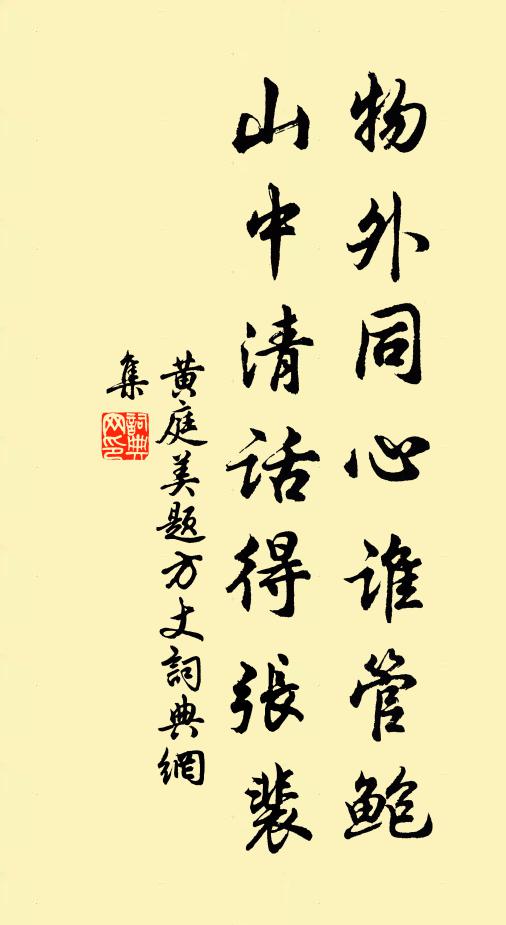 物外同心谁管鲍
山中清话得張裴
黄庭美题方丈詞典網
集
詞典
网印